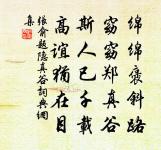 绵绵褒斜路
窈窈郑真谷
斯人已千载
高谊犹在目
张俞题隐真谷词典网
集